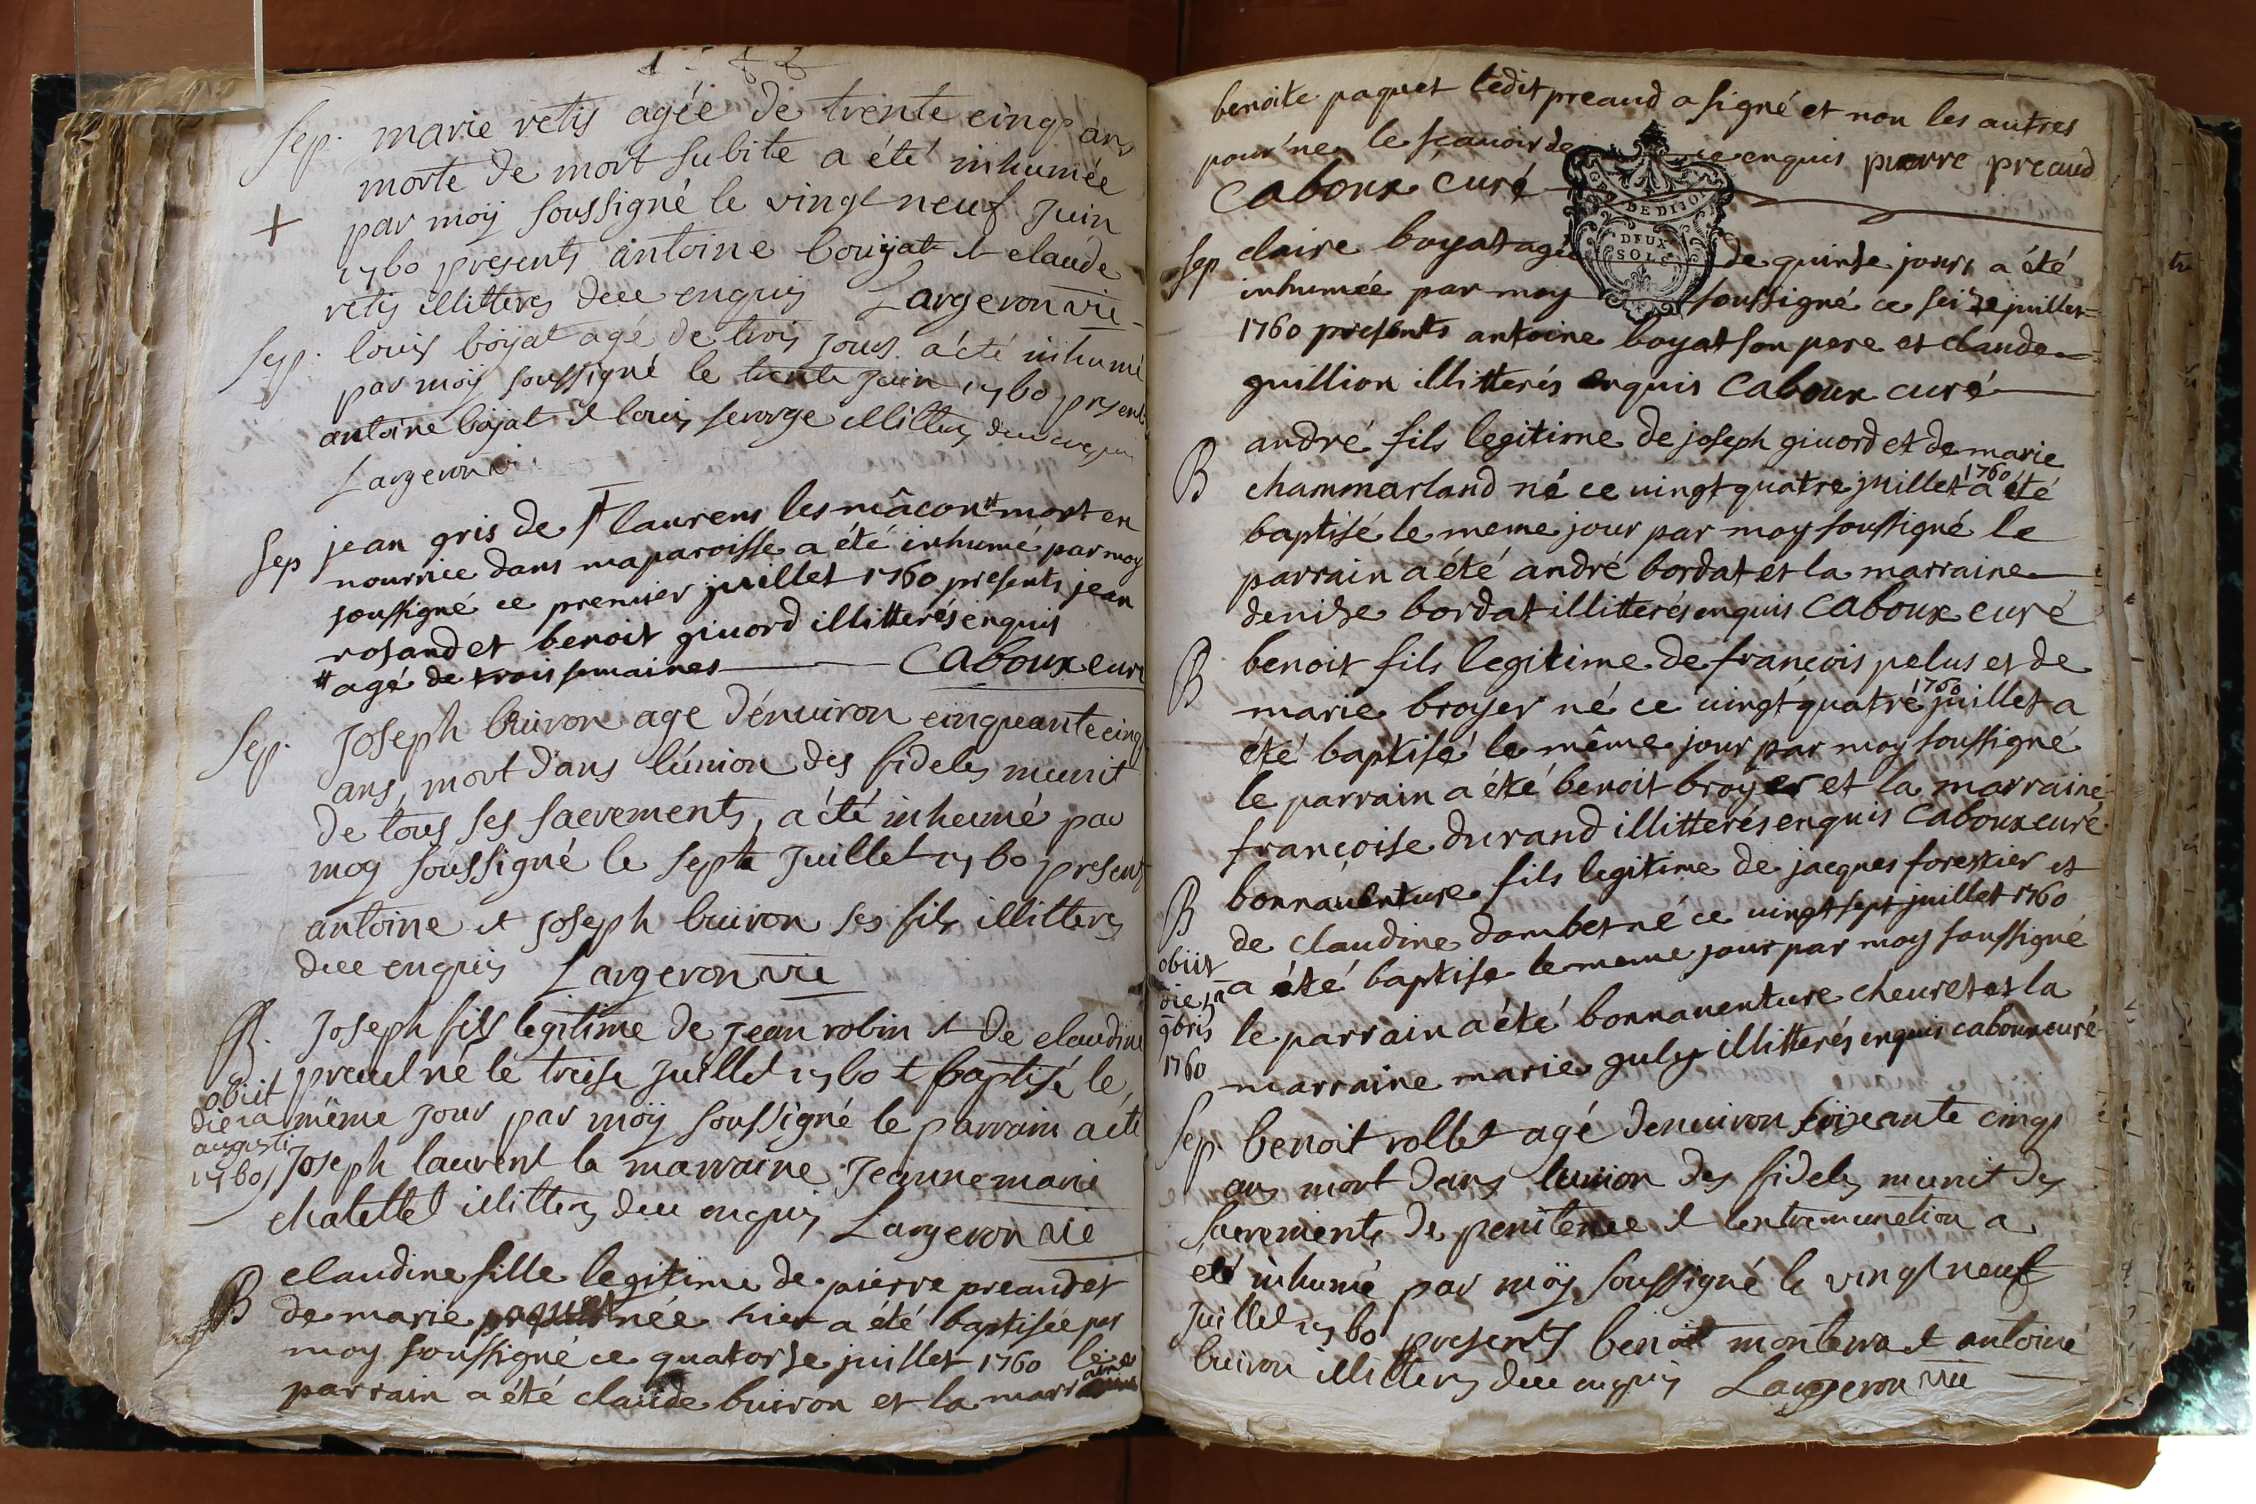 Sep. marie retis agée de trente cinq ans
morte de mort subite a été inhumée
+ par moÿ soussigné le vingt neuf Juin
1760 presents antoine boyat et claude
retis illitterés de ce enquis Largeron vic
Sep. louis boyat agé de trois jours a été inhumé
par moÿ soussigné le trente Juin 1760 presents
antoine boyat et louis serorge illitterés de ce enquis
Largeron vi
Sep jean gris de st laurens les mâcon # mort en
nourrice dans ma paroisse a été inhumé par moy
soussigné ce premier juillet 1760 presents jean
rosand et benoit giuord illitterés enquis
# agé de trois semaines Caboux curé
Sep. Joseph buiron age dénuiron cinquante cinq
ans, mort dans lúnion des fideles munit
de tous ses sacrements, a été inhumé par
moy soussigné le sept Juillet 1760 presents
antoine et joseph buiron ses fils illitterés
de ce enquis Largeron vic
B. Joseph fils legitime de Jean robin et de claudine
preaud né le treise Juillet 1760 et baptisé le
même jour par moÿ soussigné le parrain a été
Joseph laurent la marraine Jeanne marie
chatellet illitterés de ce enquis Largeron vic
obiit
die 12a
augusti
1760
B claudine fille legitime de pierre preaud et
de marie paquet née hier a été baptisée par
moy soussigné ce quatorse juillet 1760 le
parrain a été claude buiron et la marraine
benoite paquet ledit preaud a signé et non les autres
pour ne le sçauoir de ce enquis pierre preaud
Caboux curé
GEN DE DIJON
DEUX
SOLS
Sep claire boyat agée de quinse jours a été
inhumée par moy soussigné ce seize juillet
1760 presents antoine boyat son pere et claude
guillion illitterés enquis Caboux curé
B andré fils legitime de joseph giuord et de marie
chammarland né ce uingt quatre juillet 1760 a été
baptisé le meme jour par moy soussigné le
parrain a été andré bordat et la marraine
denise bordat illitterés enquis Caboux curé
B benoit fils legitime de françois pelus et de
marie broyer né ce uingt quatre juillet 1760 a
été baptisé le même jour par moy soussigné
le parrain a été benoit broyer et la marraine
françoise durand illitterés enquis Caboux curé
B bonnauenture fils legitime de jacques forestier et
de claudine dombet né ce uingt sept juillet 1760
a été baptise le meme jour par moy soussigné
le parrain a été bonnauenture cheuret et la
marraine marie guly illitterés enquis caboux curé
obiit
die
9bris
1760
Sep. benoit rollet agé denuiron soixante cinq
ans mort dans lunion des fideles munit des
sacrements de penitence et lextremunction a
été inhumé par moÿ soussigné le vingt neuf
Juillet 1760 presents benoit monterra et antoine
buiron illitterés de ce enquis Largeron vic